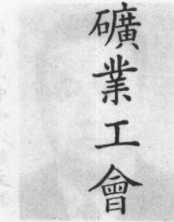 礦業工會